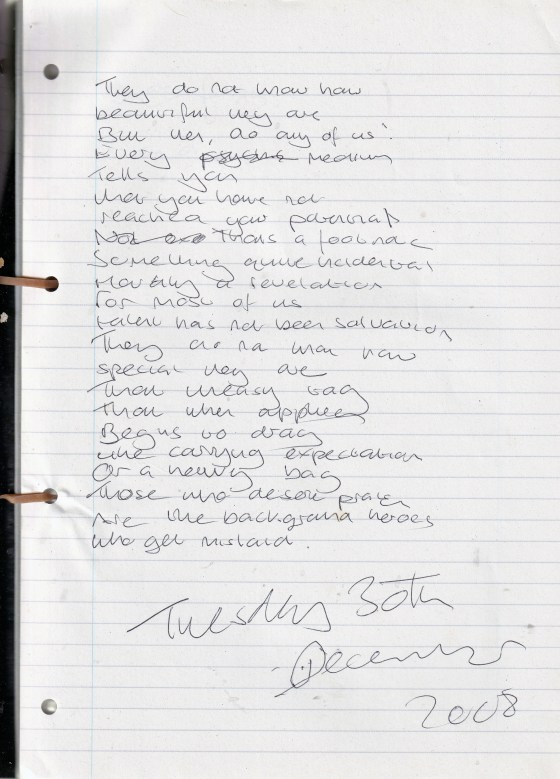 They do not know how
beautiful they are
But then, do any of us?
Every psychic medium
Tells you
that you have not
reached your potential
Not are Thats a footnote
Something quite incidental
Hardly a revelation
For most of us
talent has not been salvation
They do not know how
special they are
That uneasy tag
That when applied
Begins to drag
like carrying expectation
Or a heavy bag
Those who deserve praise
Are the background heroes
who get mislaid.
Tuesday 30th
December
2008